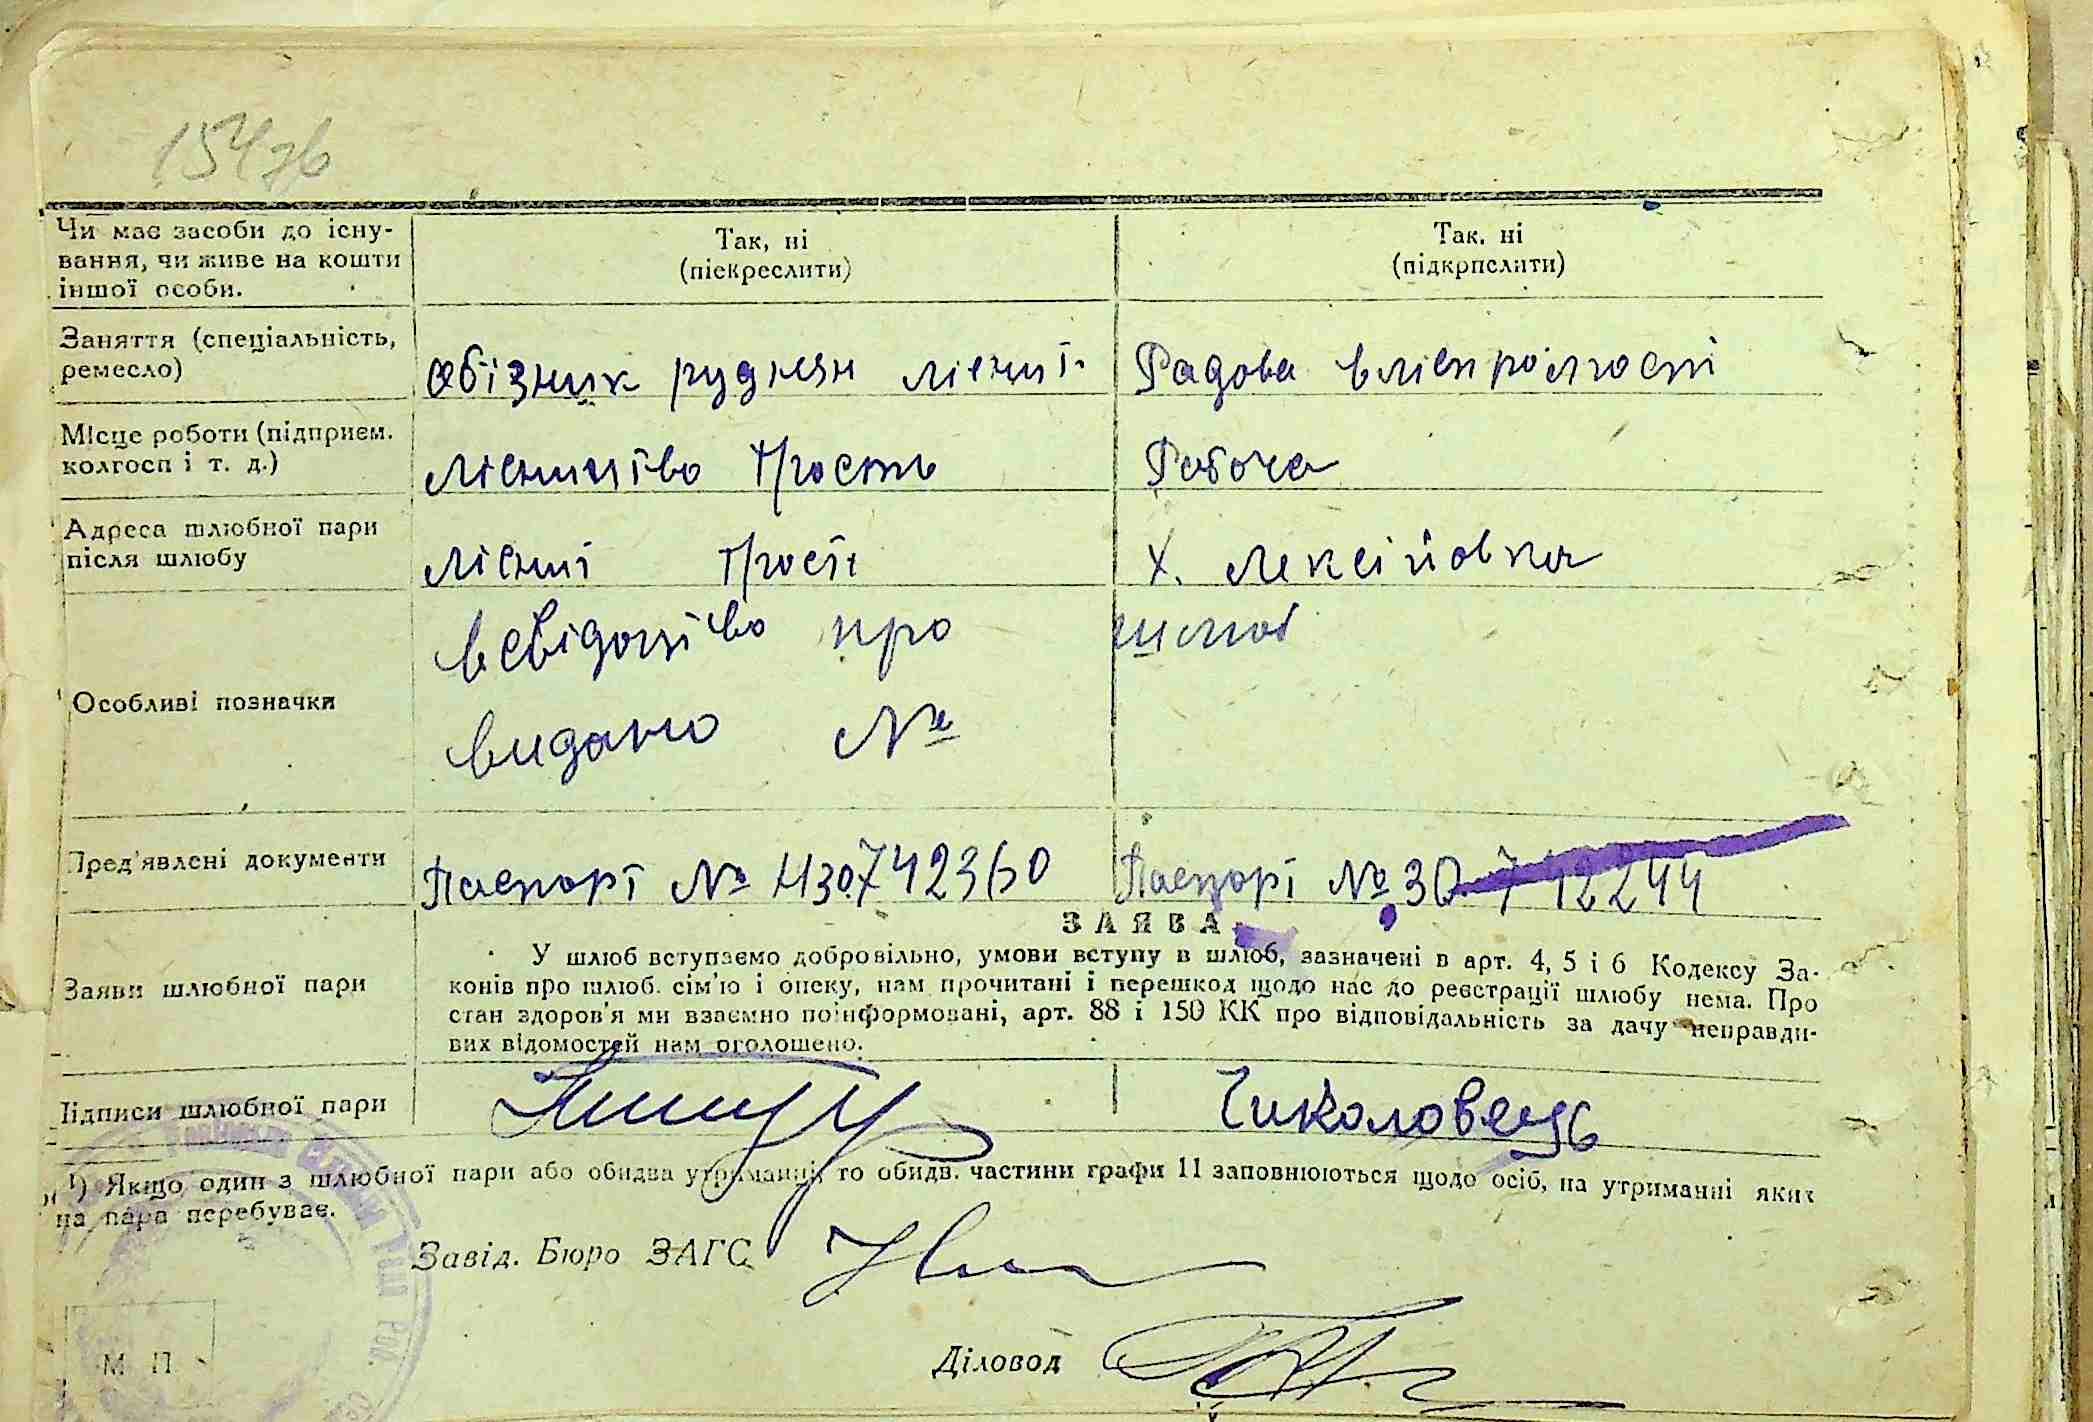 154зв
Чи має засоби до існу-
вання, чи живе на кошти
іншої особи.
Так, ні
(піекреслити)
Так. ні
(підкрпслити)
Заняття (спеціальність,
ремесло)
Обізник руднян лісниї
Радова вліспромгоспі
Місце роботи (підприєм.
колгосп і т. д.)
Лісництво Трость
Робоча
Адреса шлюбної пари
після шлюбу
Лісниї Трості
х. Лексійовка
Особливі позначки
всвідоцтво про шлюб
видано №
Пред'явлені документи
Паспорт № 742360
Паспорт № 30 712244
ЗАЯВА
Заяви шлюбної пари
У шлюб вступаємо добровільно, умови вступу в шлюб, зазначені в арт. 4, 5 і 6 Кодексу За-
конів про шлюб. сім'ю і опеку, нам прочитані і перешкод щодо нас до реєстрації шлюбу нема. Про
стан здоров'я ми взаємно поінформовані, арт. 88 і 150 КК про відповідальність за дачу неправди-
вих відомостей нам оголошено.
Підписи шлюбної пари
Чиколовець
¹) Якщо один з шлюбної пари або обидва утриманці, то обидв. частини графи 11 заповнюються щодо осіб, на утриманні яких
ця пара перебуває.
Завід. Бюро ЗАГС
Діловод
М П